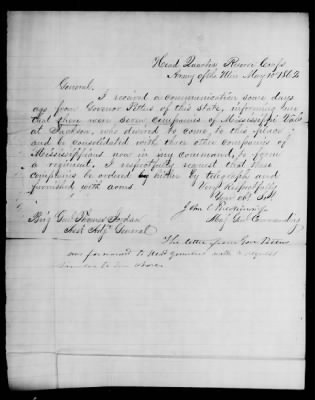 Head Quarters Reserve Corps
Army of the Miss May 10 1862
General.
I received a communication some days
ago from Governor Pettus of this state, informing me
that there were seven companies of Mississippi Vols
at Jackson, who desired to come, to this place
and be consolidated with three other companies of
Mississippians now in my command, to form
a regiment. I respectfully request that these
companies be ordered hither by telegraph and
furnished with arms.
Very Respectfully
Your obt Svt
John C Breckinridge
Brig Genl Thomas Jordan
Maj Genl Commanding
Asst Adjt General
The letter from Gov. Pettus
was forwarded to Head quarters with a request
similar to the above.